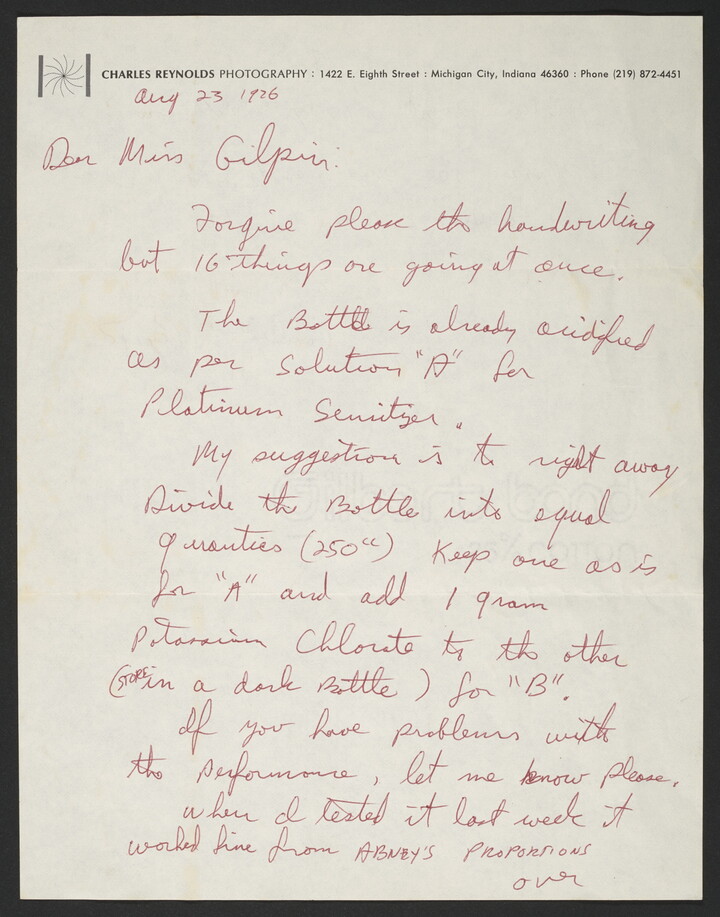 CHARLES REYNOLDS PHOTOGRAPHY : 1422 E. Eighth Street : Michigan City, Indiana 46360 : Phone (219) 872-4451
Aug 23 1976
Dear Miss Gilpin:
Forgive please the handwriting
but 16 things are going at once.
The Bottle is already acidified
as per Solution "A" for
Platinum Sensitizer.
My suggestion is to right away
Divide the Bottle into equal
quanties (250cc) Keep one as is
for "A" and add 1 gram
Potassium Chlorate to the other
(STORE in a dark Bottle) for "B".
If you have problems with
the performance, let me know please.
When I tested it last week it
worked fine from ABNEY'S PROPORTIONS
over